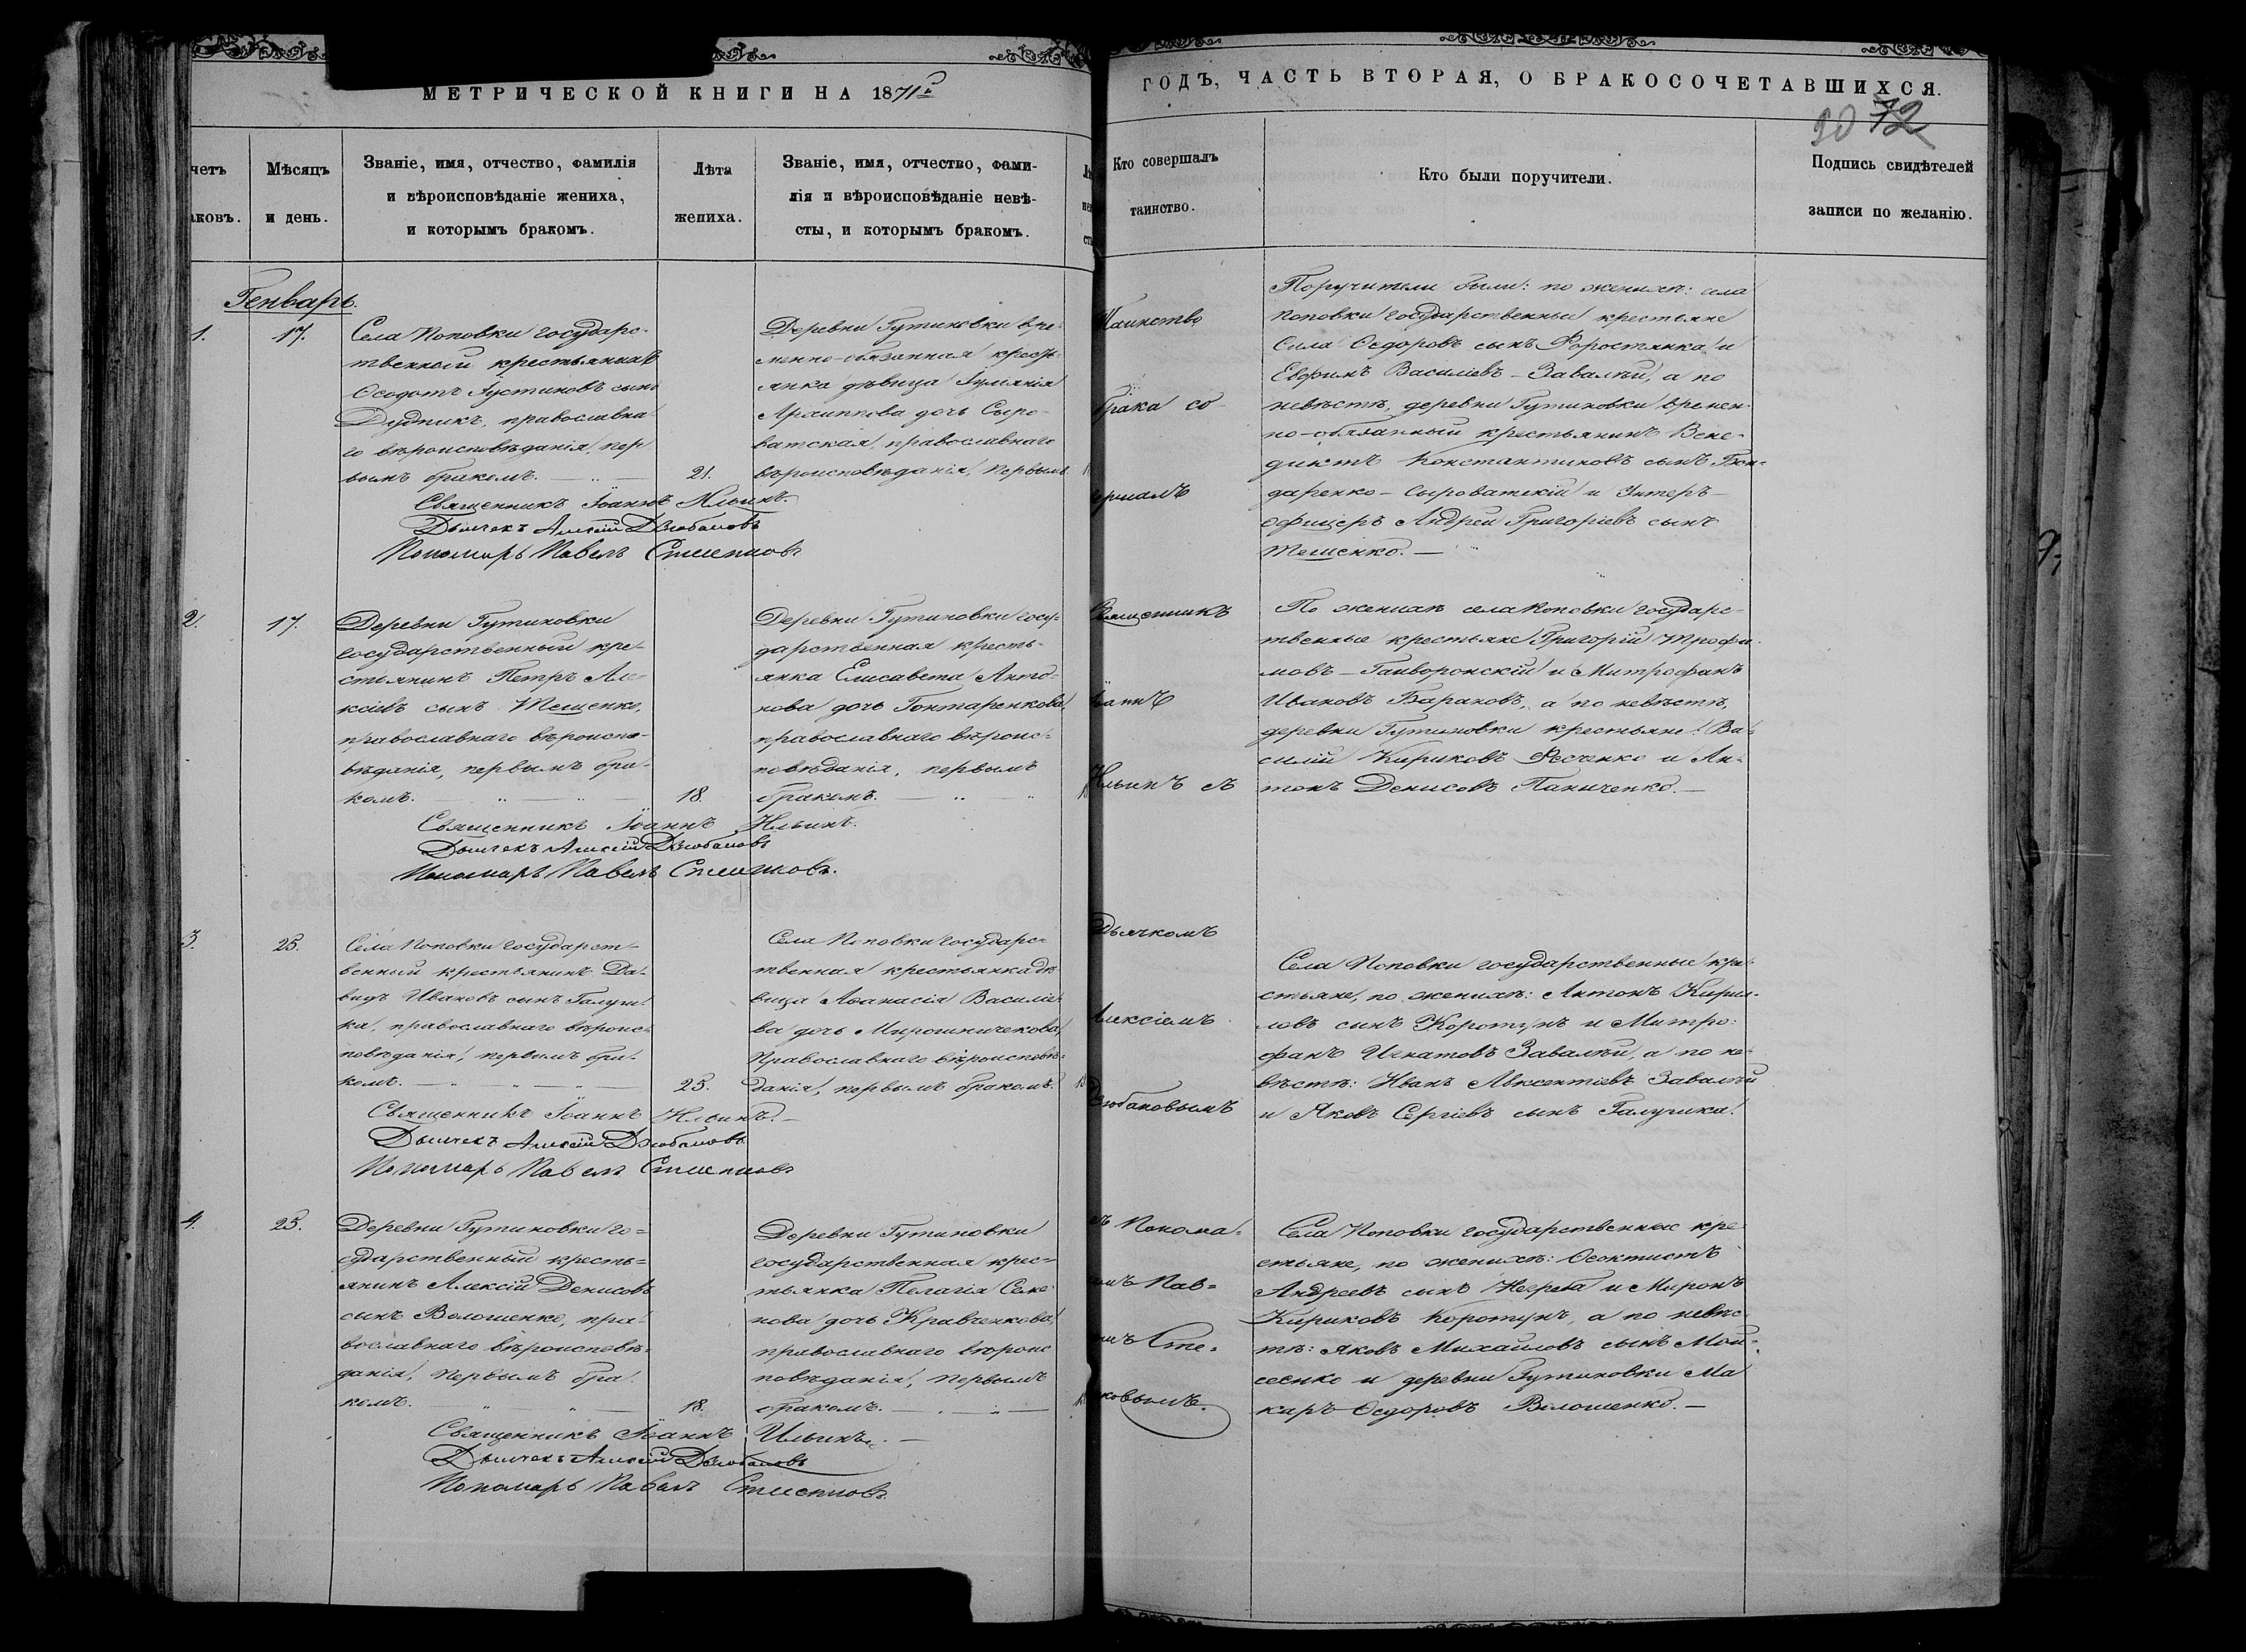 МЕТРИЧЕСКОЙ КНИГИ НА 1871й
ГОДЪ, ЧАСТЬ ВТОРАЯ, О БРАКОСОЧЕТАВШИХСЯ.
72
четъ
аковъ.
Мѣсяцъ
и день.
Званіе, имя, отчество, фамилія
и вѣроисповѣданіе жениха,
и которымъ бракомъ.
Лѣта
жениха.
Званіе, имя, отчество, фами-
лія и вѣроисповѣданіе невѣ-
сты, и которымъ бракомъ.
Кто совершалъ
таинство.
Кто были поручители.
Подпись свидѣтелей
записи по желанію.
Генварь.
1.
17.
Села Поповки государс-
твенный крестьянинъ
Ѳеодотъ Іустиновъ сынъ
Дудникъ, православна-
го вѣроисповѣданія, пер
вымъ бракомъ.
21.
Деревни Гутниковки вре-
менно-обязанная кресть-
янка дѣвица Іуліанія
Архиппова дочь Сыро-
ватская, православнаго
вѣроисповѣданія, первымъ
Священникъ Іоаннъ Ильинъ.
Дьячекъ Алексій Дзюбановъ
Пономарь Павелъ
Поручители были: по женихѣ: села
Поповки государственные крестьяне
Сила Ѳедоровъ сынъ Форостянка и
Евфимъ Василіевъ Завалѣй, а по
невѣстѣ, деревни Гутниковки времен-
но-обязанный крестьянинъ Вене-
диктъ Константиновъ сынъ Бон-
даренко-Сыроватскій и Унтеръ-
офицеръ Андрей Григоріевъ сынъ
Тещенко.
2.
17.
Деревни Гутниковки
государственный кре-
стьянинъ Петръ Але-
ксіевъ сынъ Тещенко,
православнаго вѣроиспо-
вѣданія, первымъ бра-
комъ.
18.
Деревни Гутниковки госу-
дарственная кресть-
янка Елисавета Анто-
нова дочь Гонтаренкова,
православнаго вѣроис-
повѣданія, первымъ
бракомъ.
Священникъ Іоаннъ Ильинъ.
Дьячекъ Алексій Дзюбановъ
Пономарь Павелъ
По женихѣ села Поповки государс-
твенные крестьяне Григорій Трофи-
мовъ Гайворонскій и Митрофанъ
Ивановъ Барановъ, а по невѣстѣ,
деревни Гутниковки крестьяне: Ва-
силій Кириковъ Фесченко и Ан-
тонъ Денисовъ Паниченко.
3.
25.
Села Поповки государст-
венный крестьянинъ Да-
видъ Ивановъ сынъ Галуш-
ка, православнаго вѣроис-
повѣданія, первымъ бра-
комъ.
25.
Села Поповки государс-
твенная крестьянка дѣ-
вица Аѳанасія Василіе-
ва дочь Мирошниченкова,
православнаго вѣроисповѣ-
данія, первымъ бракомъ.
Священникъ Іоаннъ Ильинъ.
Дьячекъ Алексій Дзюбановъ
Пономарь Павелъ
Села Поповки государственные кре-
стьяне, по женихѣ: Антонъ Кирил-
ловъ сынъ Коротунъ и Митро-
фанъ Игнатовъ Завалѣй, а по не-
вѣстѣ: Иванъ Авксентіевъ Завалѣй
и Яковъ Сергіевъ сынъ Галушка.
4.
25.
Деревни Гутниковки го-
сударственный кресть-
янинъ Алексій Денисовъ
сынъ Волошенко, пра-
вославнаго вѣроисповѣ-
данія, первымъ бра-
комъ.
18.
Деревни Гутниковки
государственная крес-
тьянка Пелагія Семе-
нова дочь Кравченкова,
православнаго вѣроис
повѣданія, первымъ
бракомъ.
Священникъ Іоаннъ Ильинъ.
Дьячекъ Алексій Дзюбановъ
Пономарь Павелъ
Села Поповки государственные кре
стьяне, по женихѣ: Ѳеоктистъ
Андреевъ сынъ Негреба и Миронъ
Кириковъ Коротунъ, а по невѣс-
тѣ: Яковъ Михайловъ сынъ Мой-
сеенко и деревни Гутниковки Ма
каръ Ѳедоровъ Волошенко.
Таинство
брака со-
вершалъ
Священникъ
Іоаннъ
Ильинъ съ
Дьячкомъ
Алексіемъ
Дзюбановымъ
Понома-
Пав-